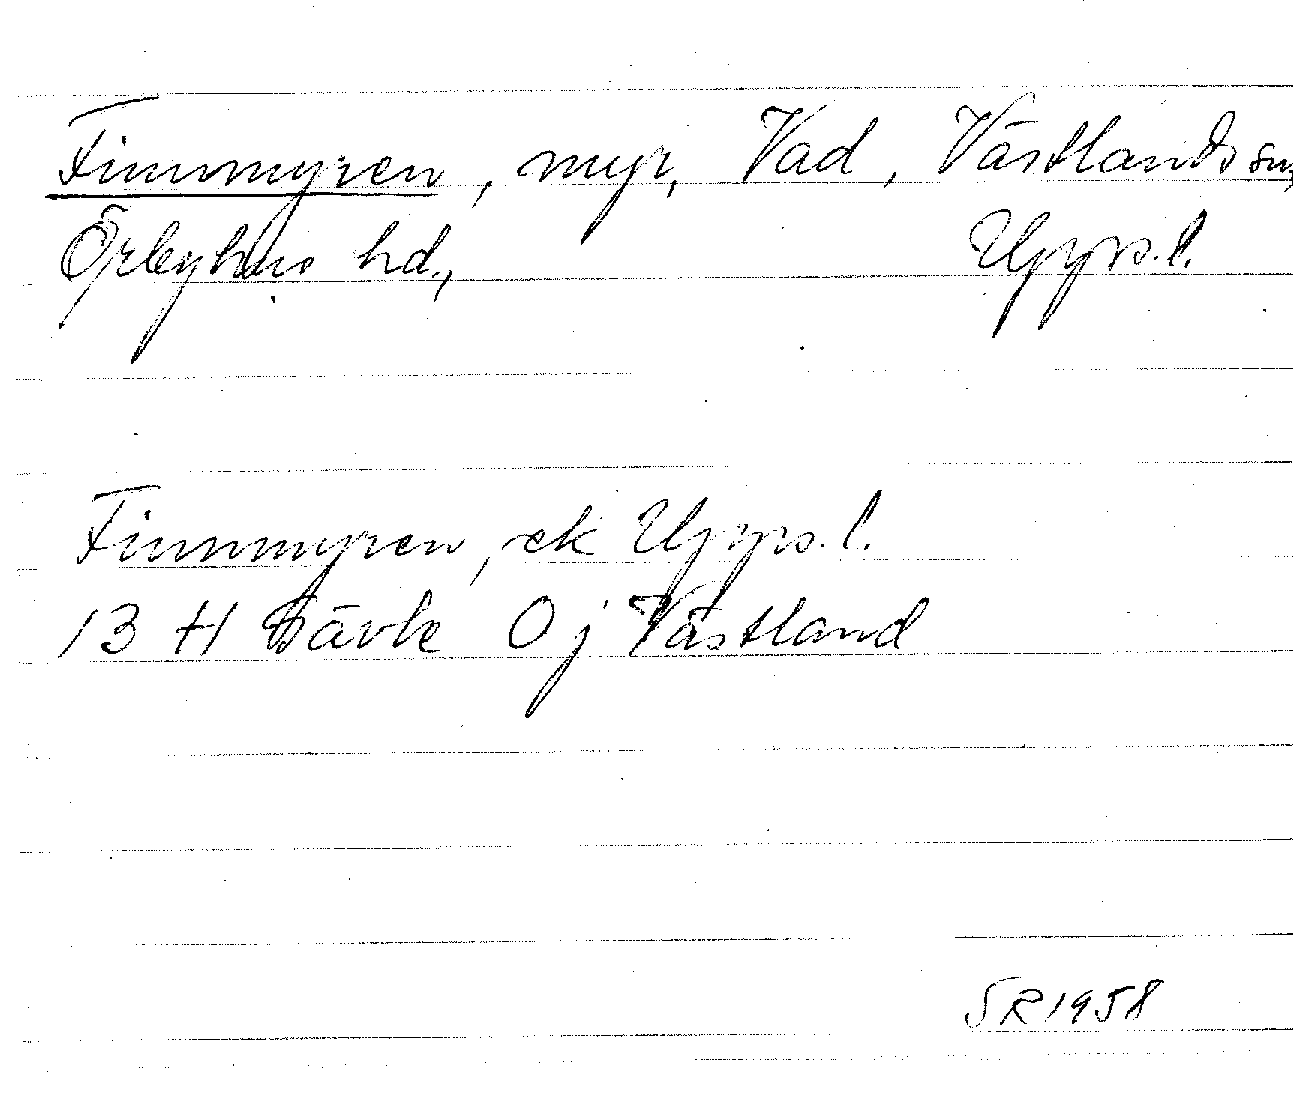 Finnmyren, myr, Vad, Västlands sn,
Örbyhus hd., Upps.l.
Finnmyren, ek Upps.l.
13 H Gävle 0 j Västland
SR1958